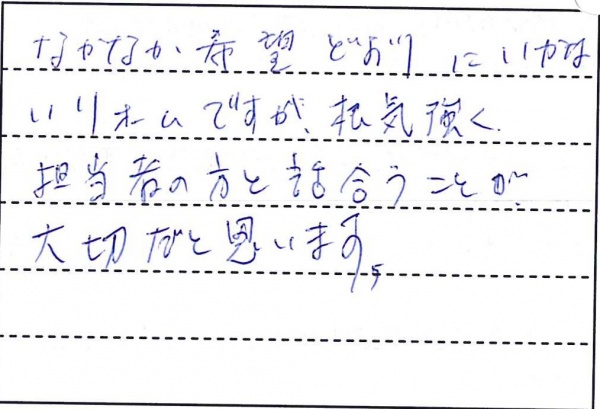 なかなか希望どおりにいかな
いリホームですが、根気強く
担当者の方と話合うことが、
大切だと思います。